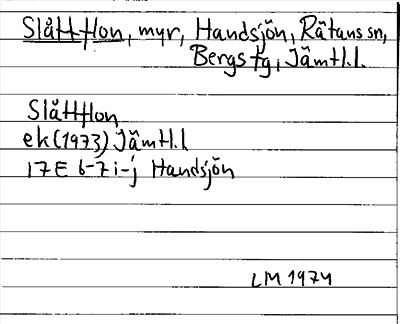 Slåttflon, myr, Handsjön, Rätans sn,
Bergs tg, Jämtl.l.
Slåttflon
ek (1973) Jämtl.l
17E 6-7 i-j Handsjön
LM 1974